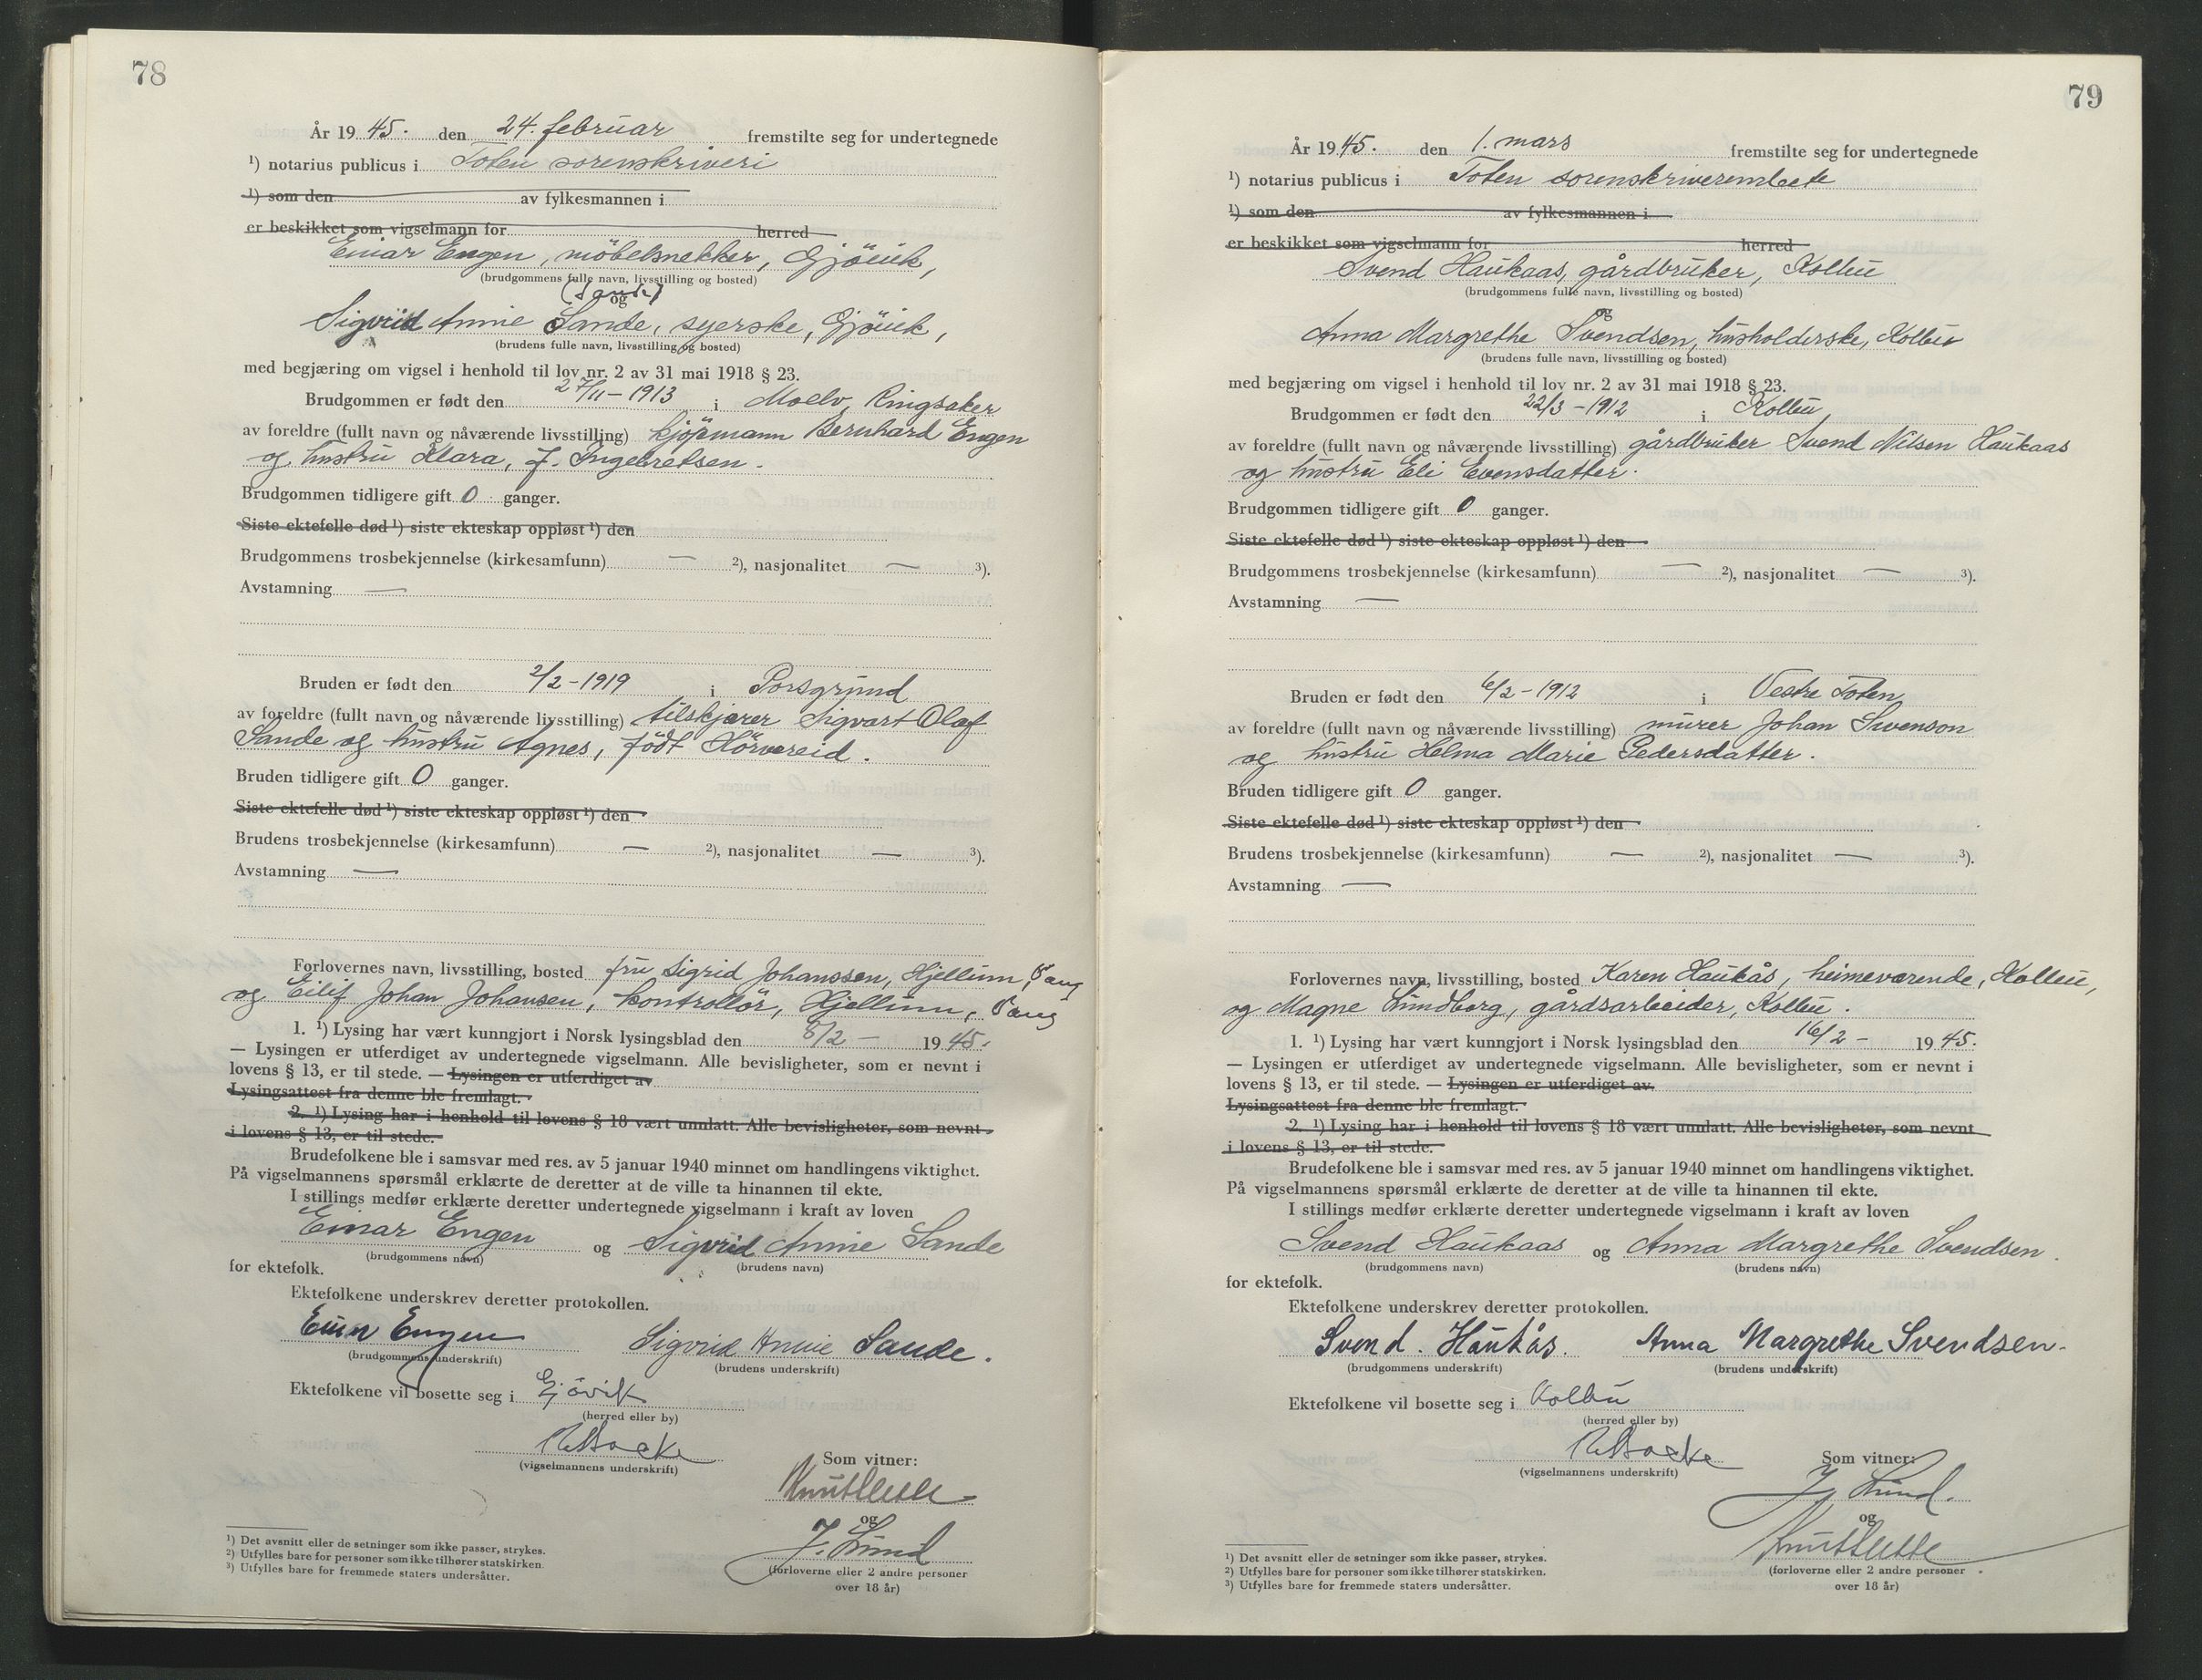 78
År 1945. den 24. februar fremstilte seg for undertegnede
¹) notarius publicus i Toten sorenskriveri
¹) som den av fylkesmannen i
er beskikket som vigselmann for herred
Einar Engen, möbelsnekker, Gjövik,
(brudgommens fulle navn, livsstilling og bosted)
(Sande)
og
Sigvrid Annie Sande, syerske, Gjövik,
(brudens fulle navn, livsstilling og bosted)
med begjæring om vigsel i henhold til lov nr. 2 av 31 mai 1918 § 23.
Brudgommen er født den 27/11-1913 i Moelv, Ringsaker
av foreldre (fullt navn og nåværende livsstilling) kjöpmann Bernhard Engen
og hustru Klara, f. Ingebretsen.
Brudgommen tidligere gift 0 ganger.
Siste ektefelle død ¹) siste ekteskap oppløst ¹) den
Brudgommens trosbekjennelse (kirkesamfunn) — ²), nasjonalitet — ³).
Avstamning —
Bruden er født den 2/2-1919 i Porsgrund
av foreldre (fullt navn og nåværende livsstilling) tilskjærer Sigvart Olaf
Sande og hustru Agnes, födt Hörvereid.
Bruden tidligere gift 0 ganger.
Siste ektefelle død ¹) siste ekteskap oppløst ¹) den
Brudens trosbekjennelse (kirkesamfunn) — ²), nasjonalitet — ³).
Avstamning —
Forlovernes navn, livsstilling, bosted fru Sigrid Johanssen, Hjellum, Vang
og Eilif Johan Johansen, kontrollör, Hjellum, Vang
1. ¹) Lysing har vært kunngjort i Norsk lysingsblad den 8/2 - 1945.
— Lysingen er utferdiget av undertegnede vigselmann. Alle bevisligheter, som er nevnt i
lovens § 13, er til stede. — Lysingen er utferdiget av
Lysingsattest fra denne ble fremlagt.
2. ¹) Lysing har i henhold til lovens § 18 vært unnlatt. Alle bevisligheter, som nevnt
i lovens § 13, er til stede.
Brudefolkene ble i samsvar med res. av 5 januar 1940 minnet om handlingens viktighet.
På vigselmannens spørsmål erklærte de deretter at de ville ta hinannen til ekte.
I stillings medfør erklærte deretter undertegnede vigselmann i kraft av loven
Einar Engen og Sigvrid Annie Sande
(brudgommens navn) (brudens navn)
for ektefolk.
Ektefolkene underskrev deretter protokollen.
Einar Engen Sigvrid Annie Sande.
(brudgommens underskrift) (brudens underskrift)
Ektefolkene vil bosette seg i Gjövik
(herred eller by)
(vigselmannens underskrift)
Som vitner:
og
J. Lund
(forloverne eller 2 andre personer
over 18 år)
¹) Det avsnitt eller de setninger som ikke passer, strykes.
²) Utfylles bare for personer som ikke tilhører statskirken.
³) Utfylles bare for fremmede staters undersåtter.
79
År 1945. den 1. mars fremstilte seg for undertegnede
¹) notarius publicus i Toten sorenskriverembete
¹) som den av fylkesmannen i
er beskikket som vigselmann for herred
Svend Haukaas, gårdbruker, Kolbu
(brudgommens fulle navn, livsstilling og bosted)
og
Anna Margrethe Svendsen, husholderske, Kolbu
(brudens fulle navn, livsstilling og bosted)
med begjæring om vigsel i henhold til lov nr. 2 av 31 mai 1918 § 23.
Brudgommen er født den 22/3-1912 i Kolbu,
av foreldre (fullt navn og nåværende livsstilling) gårdbruker Svend Nilsen Haukaas
og hustru Eli Evensdatter.
Brudgommen tidligere gift 0 ganger.
Siste ektefelle død ¹) siste ekteskap oppløst ¹) den
Brudgommens trosbekjennelse (kirkesamfunn) — ²), nasjonalitet — ³).
Avstamning —
Bruden er født den 6/2-1912 i Vestre Toten
av foreldre (fullt navn og nåværende livsstilling) murer Johan Swenson
og hustru Helma Marie Pedersdatter.
Bruden tidligere gift 0 ganger.
Siste ektefelle død ¹) siste ekteskap oppløst ¹) den
Brudens trosbekjennelse (kirkesamfunn) — ²), nasjonalitet — ³).
Avstamning —
Forlovernes navn, livsstilling, bosted Karen Haukås, heimeværende, Kolbu,
og Magne Lundborg, gårdsarbeider, Kolbu.
1. ¹) Lysing har vært kunngjort i Norsk lysingsblad den 16/2 - 1945.
— Lysingen er utferdiget av undertegnede vigselmann. Alle bevisligheter, som er nevnt i
lovens § 13, er til stede. — Lysingen er utferdiget av
Lysingsattest fra denne ble fremlagt.
2. ¹) Lysing har i henhold til lovens § 18 vært unnlatt. Alle bevisligheter, som nevnt
i lovens § 13, er til stede.
Brudefolkene ble i samsvar med res. av 5 januar 1940 minnet om handlingens viktighet.
På vigselmannens spørsmål erklærte de deretter at de ville ta hinannen til ekte.
I stillings medfør erklærte deretter undertegnede vigselmann i kraft av loven
Svend Haukaas og Anna Margrethe Svendsen.
(brudgommens navn) (brudens navn)
for ektefolk.
Ektefolkene underskrev deretter protokollen.
Svend. Haukås. Anna Margrethe Svendsen.
(brudgommens underskrift) (brudens underskrift)
Ektefolkene vil bosette seg i Kolbu
(herred eller by)
(vigselmannens underskrift)
Som vitner:
J. Lund.
og
(forloverne eller 2 andre personer
over 18 år)
¹) Det avsnitt eller de setninger som ikke passer, strykes.
²) Utfylles bare for personer som ikke tilhører statskirken.
³) Utfylles bare for fremmede staters undersåtter.